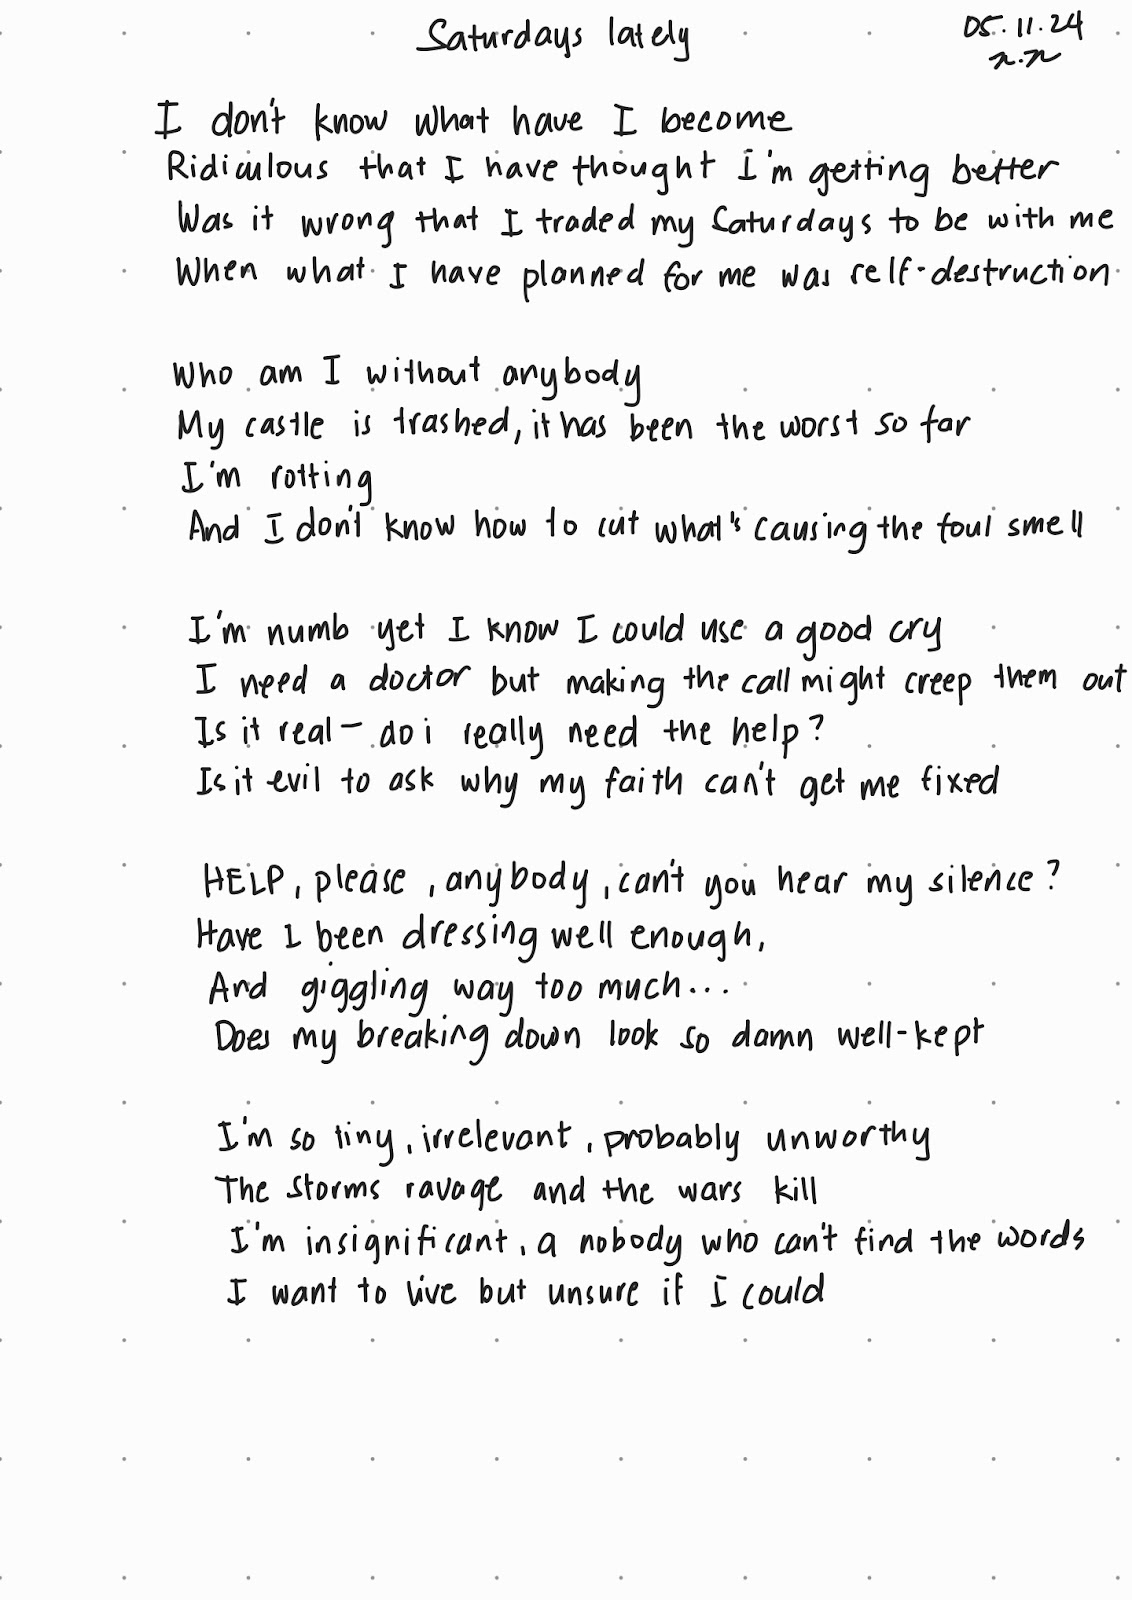 Saturdays lately
05.11.24
n.n
I don't know what have I become
Ridiculous that I have thought I'm getting better
Was it wrong that I traded my Saturdays to be with me
When what I have planned for me was self-destruction
Who am I without anybody
My castle is trashed, it has been the worst so far
I'm rotting
And I don't know how to cut what's causing the foul smell
I'm numb yet I know I could use a good cry
I need a doctor but making the call might creep them out
Is it real - do i really need the help?
Is it evil to ask why my faith can't get me fixed
HELP, please, anybody, can't you hear my silence?
Have I been dressing well enough,
And giggling way too much...
Does my breaking down look so damn well-kept
I'm so tiny, irrelevant, probably unworthy
The storms ravage and the wars kill
I'm insignificant, a nobody who can't find the words
I want to live but unsure if I could